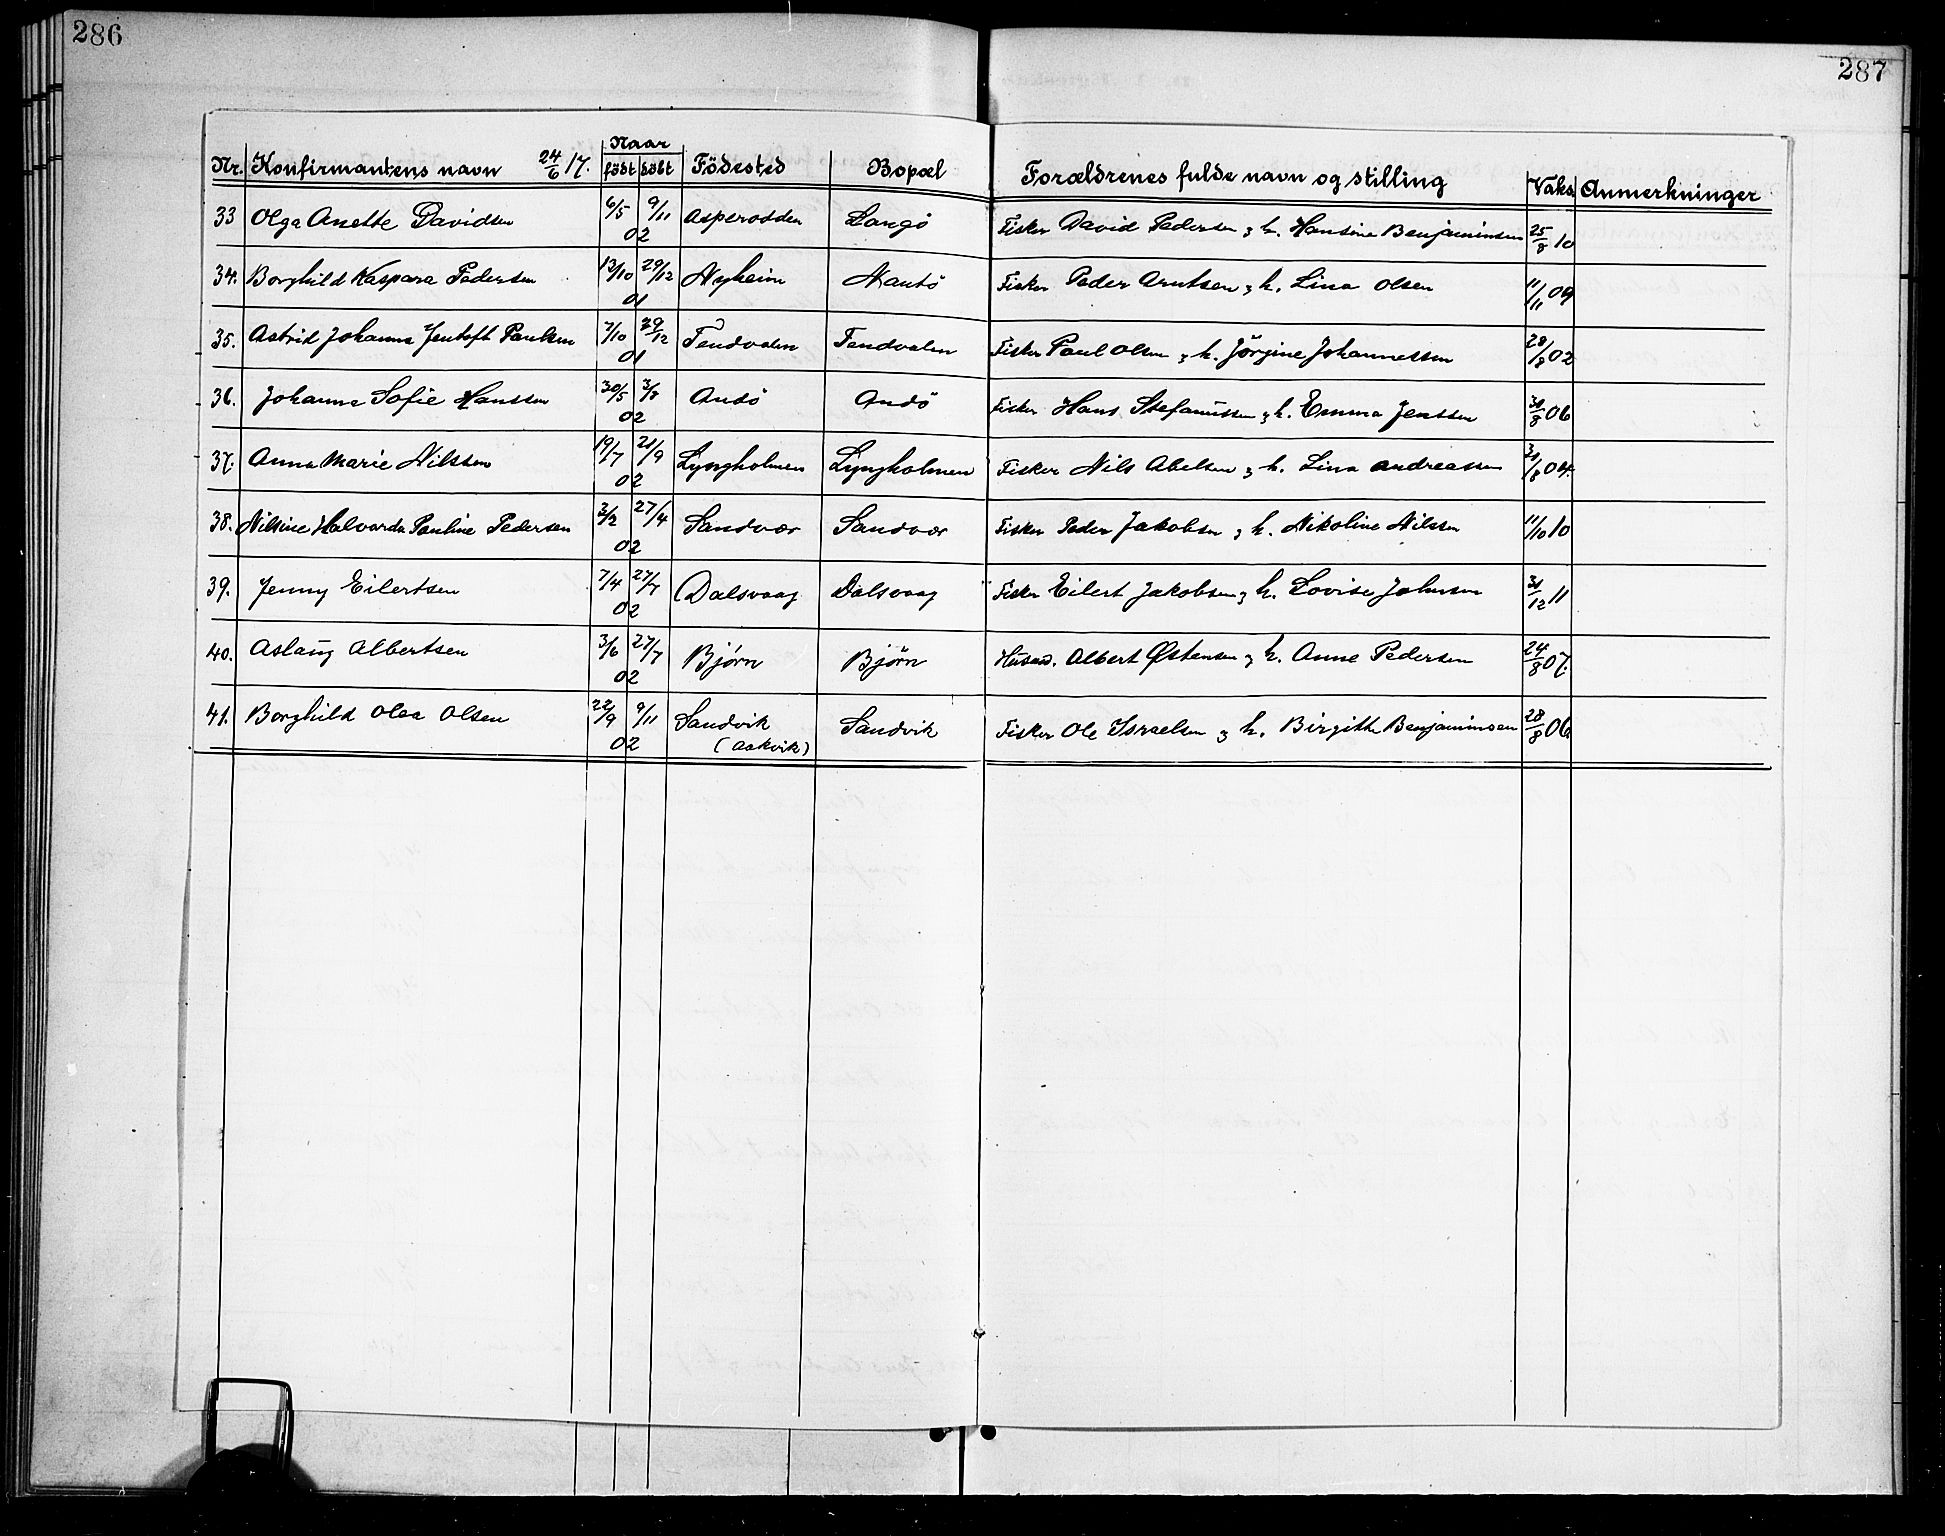 286
287
Nr. Konfirmantens navn 24/6 17. Naar födt döbt Födested Bopæl Forældrenes fulde navn og stilling Vaks. Anmerkninger
33 Olga Anette Davidsen 6/5 9/11 02 Asperodden Langö Fisker David Pedersen & h. Hansine Benjaminsen 25/8 10
34. Borghild Kaspara Pedersen 13/10 29/12 01 Nyheim Nautö Fisker Peder Arntsen & h. Lina Olsen 11/11 09
35. Astrid Johanna Jentoft Paulsen 7/10 29/12 01 Tendvalen Tendvalen Fisker Paul Olsen & h. Jörgine Johannessen 28/8 02
36. Johanna Sofie Hanssen 30/5 3/8 02 Andö Andö Fisker Hans Stefanussen & h. Emma Jenssen 31/8 06
37. Anna Marie Nilssen 19/7 21/9 02 Lyngholmen Lyngholmen Fisker Nils Abelsen & h. Lina Andreassen 31/8 04.
38. Nilsine Halvarda Pauline Pedersen 3/2 27/4 02 Sandvær Sandvær Fisker Peder Jakobsen & h. Nikoline Nilssen 11/10 10
39. Jenny Eilertsen 7/4 27/7 02 Dalsvaag Dalsvaag Fisker Eilert Jakobsen & h. Lovise Johnsen 31/12 11
40. Aslaug Albertsen 3/6 27/7 02 Bjørn Bjørn Husm. Albert Østensen & h. Anne Pedersen 24/8 07.
41. Borghild Olea Olsen 22/9 9/11 02 Sandvik (Aakvik) Sandvik Fisker Ole Israelsen & h. Birgitte Benjaminsen 28/8 06